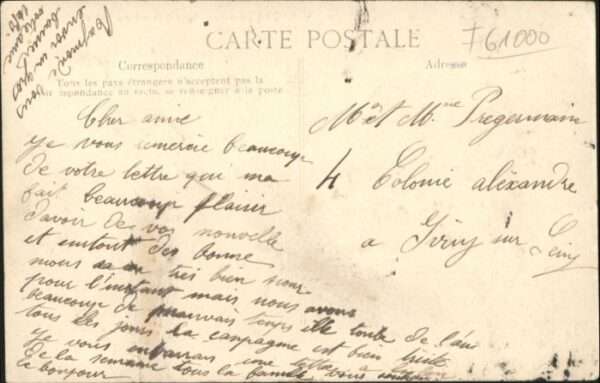 CARTE POSTALE
F61000
Correspondance
Adresse
Tous les pays étrangers n'acceptent pas la
correspondance au recto, se renseigner à la poste
Raymonde vous
envoi un gros
baiser
Cher amie
je vous remercie beaucoup
de votre lettre qui ma
fait beaucoup plaisir
davoir de vos nouvelle
et surtout des bonne
nous sa va très bien pour
pour l'instant mais nous avons
beaucoup de mauvais temps elle tombe de l'eau
tous les jours la campagne est bien triste
je vous
de la semaine tous la famille vous
le bonjour
Mr et Mme Pregermain
4 Colonie aléxandre
a Ivry sur Seine